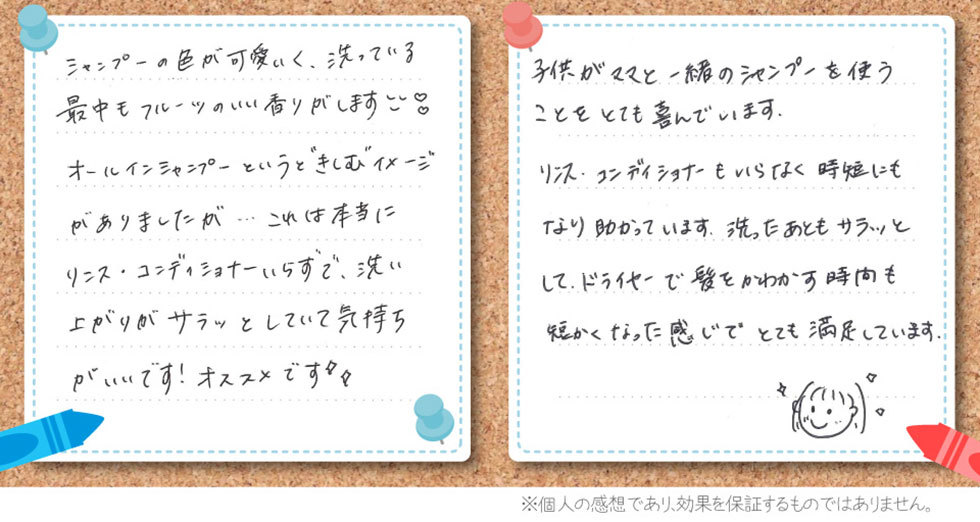 シャンプーの色が可愛いく、洗っている
最中もフルーツのいい香りがします♡♡
オールインシャンプーというと"きしむ"イメージ
がありましたが…これは本当に
リンス・コンディショナーいらずで、洗い
上がりがサラッとしていて気持ち
がいいです!オススメです
子供がママと一緒のシャンプーを使う
ことをとても喜んでいます.
リンス・コンディショナーもいらなく時短にも
なり助かっています.洗ったあともサラッと
して.ドライヤーで髪をかわかす時間も
短かくなった感じでとても満足しています.
※個人の感想であり、効果を保証するものではありません。